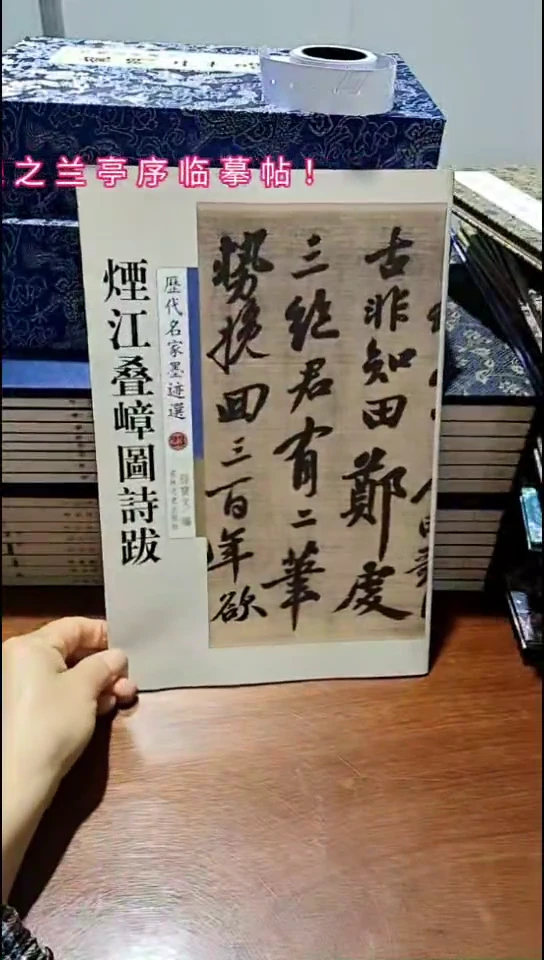 之兰亭序临摹帖！
煙江叠嶂圖詩跋
歷代名家墨迹選
23
古非知田鄭虔
三絶君有二筆
勢挽回三百年欲